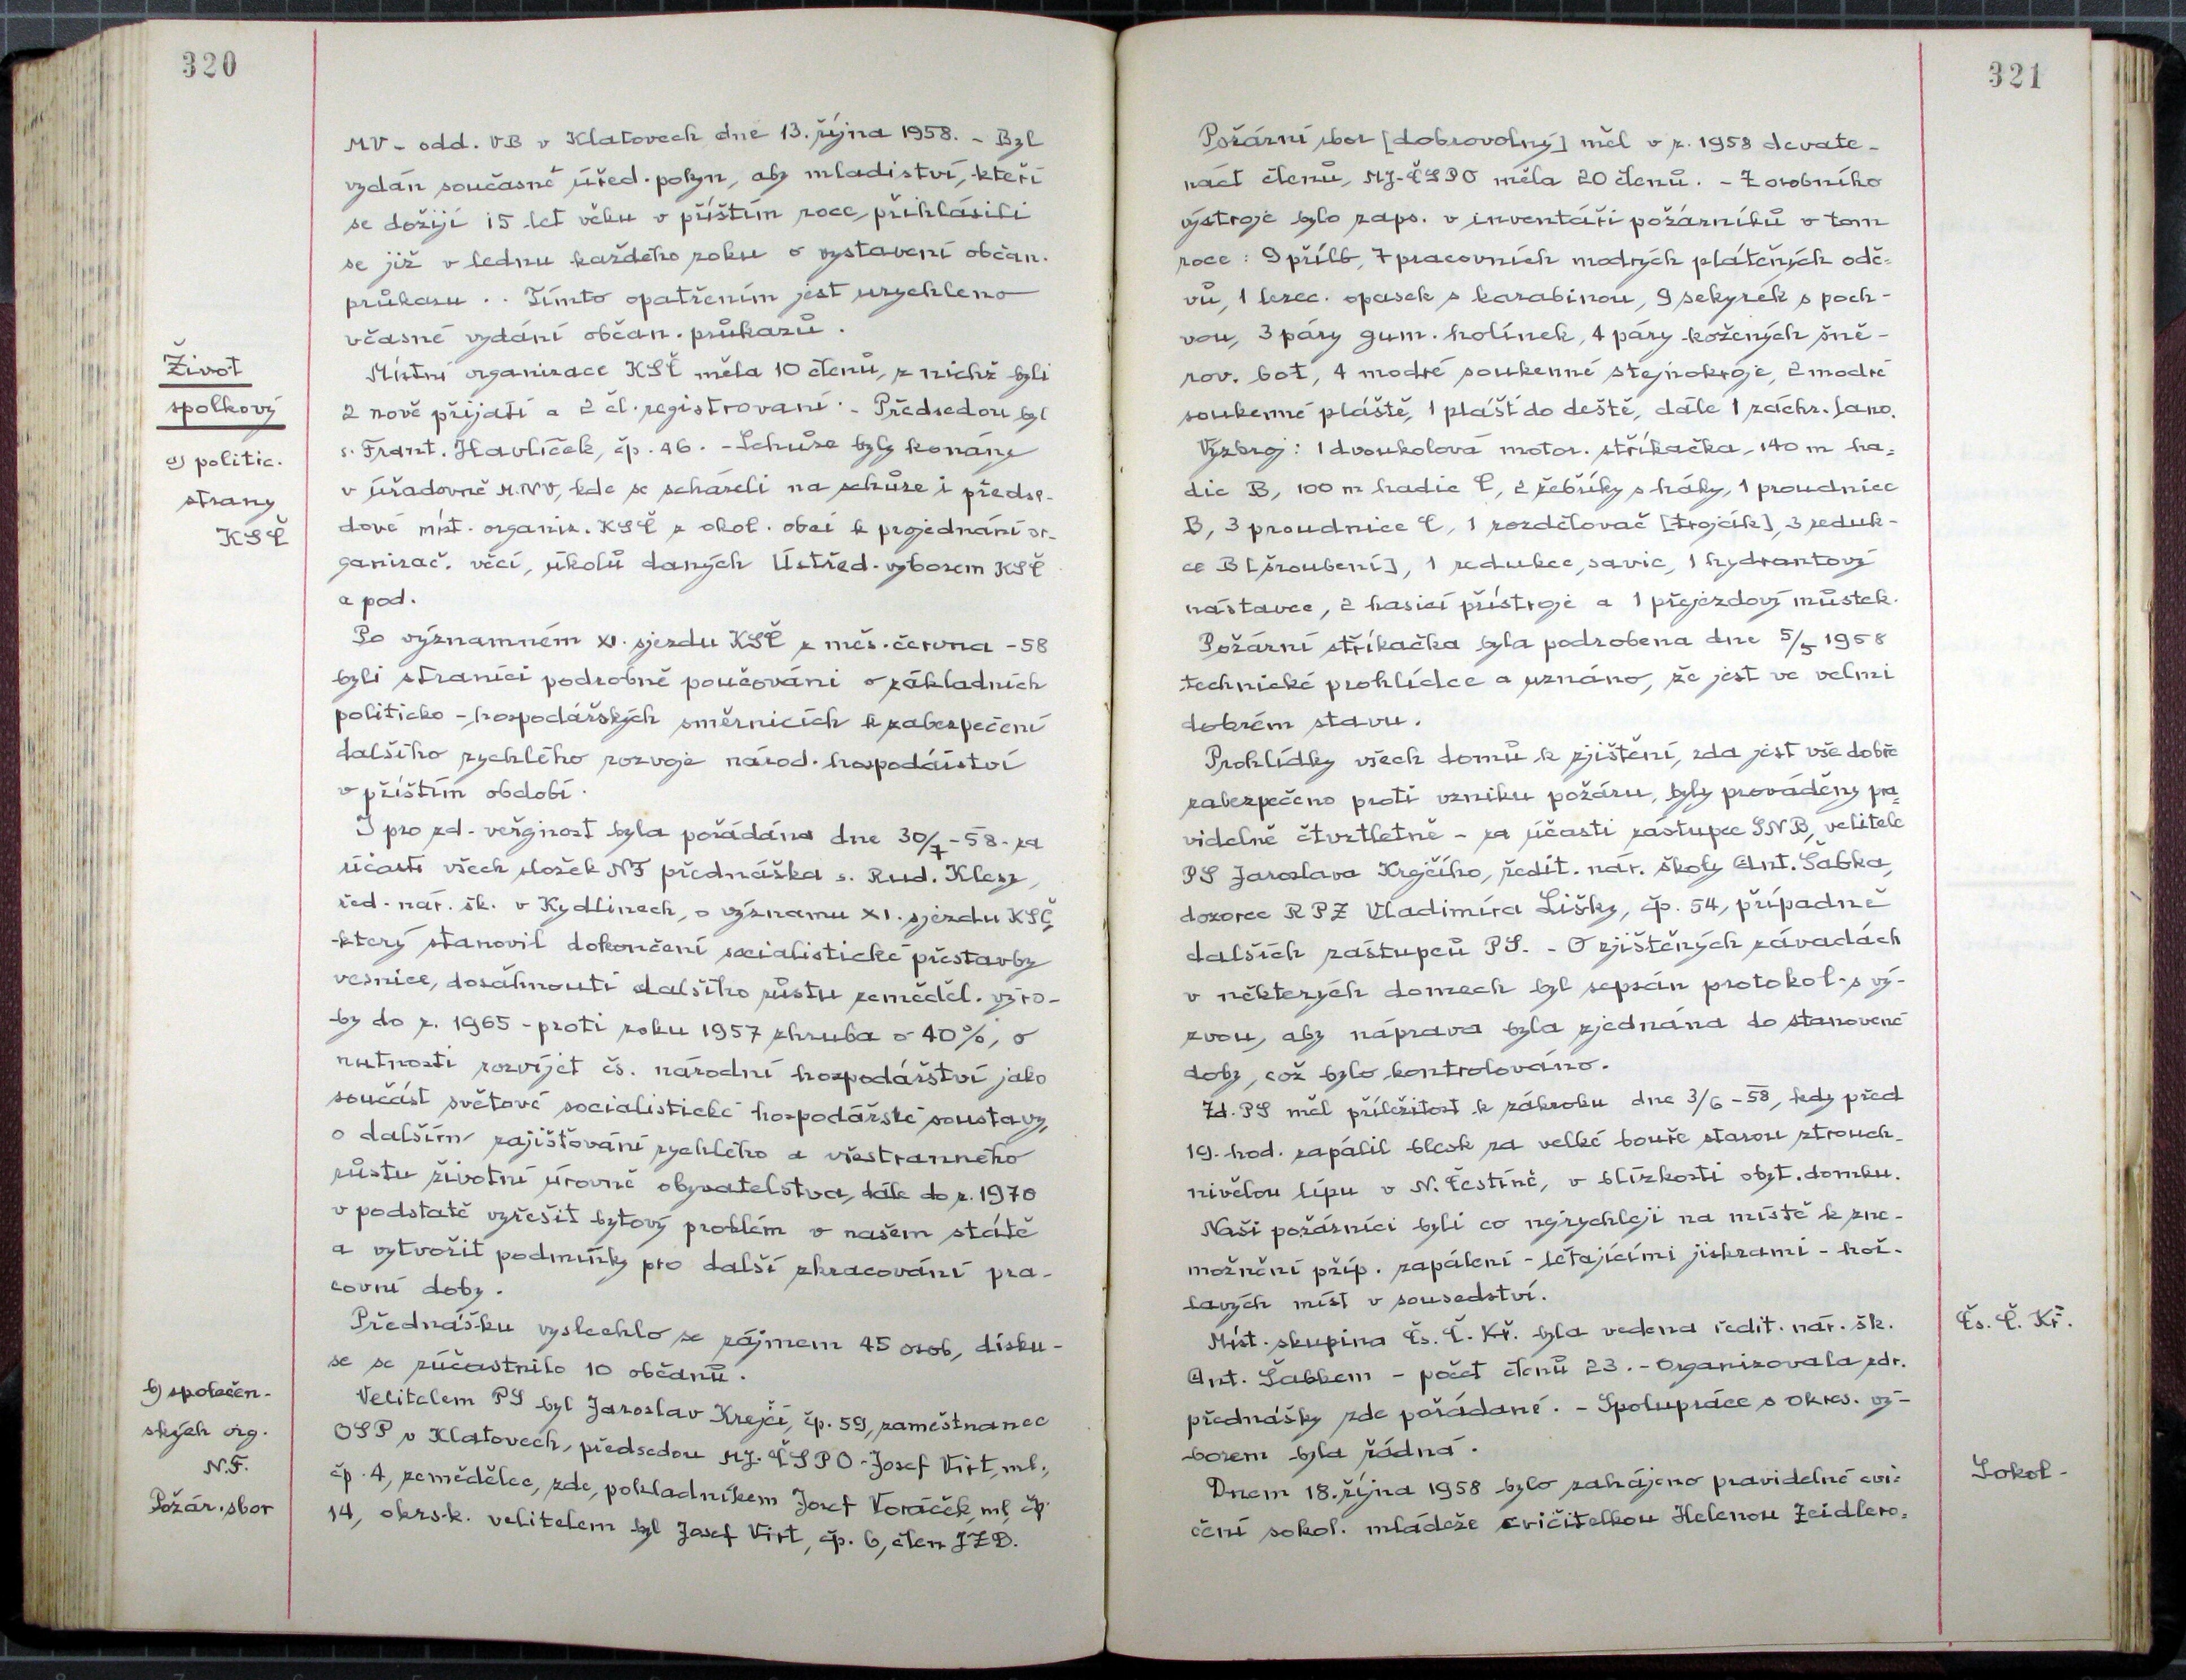 320
MV - odd. VB v Klatovech dne 13. října 1958. - Byl
vydán současně úřed. pokyn, aby mladiství, kteří
se dožijí 15 let věku v příštím roce, přihlásili
se již v lednu každého roku o vystavení občan.
průkazu.. Tímto opatřením jest urychleno
včasné vydání občan. průkazů.
Život
spolkový
a) politic.
strany
KSČ
Místní organizace KSČ měla 10 členů, z nichž byli
2 nově přijatí a 2 čl. registrovaní. - Předsedou byl
s. Frant. Havlíček, čp. 46. - Schůze byly konány
v úřadovně M.N.V, kde se scházeli na schůze i předse-
dové míst. organiz. KSČ z okol. obcí k projednání or-
ganizač. věcí, úkolů daných Ústřed. výborem KSČ
a pod.
Po významném XI. sjezdu KSČ z měs. června -58
byli straníci podrobně poučováni o základních
politicko - hospodářských směrnicích k zabezpečení
dalšího rychlého rozvoje národ. hospodářství
v příštím období.
I pro zd. veřejnost byla pořádána dne 30/7 -58 - za
účasti všech složek NF přednáška s. Rud. Klesy,
řed. nár. šk. v Kydlinech, o významu XI. sjezdu KSČ,
který stanovil dokončení socialistické přestavby
vesnice, dosáhnouti dalšího růstu zeměděl. výro-
by do r. 1965 - proti roku 1957 zhruba o 40%, o
nutnosti rozvíjet čs. národní hospodářství jako
součást světové socialistické hospodářské soustavy,
o dalším zajišťování rychlého a všestranného
růstu životní úrovně obyvatelstva, dále do r. 1970
v podstatě vyřešit bytový problém v našem státě
a vytvořit podmínky pro další zkracování pra-
covní doby.
Přednášku vyslechlo se zájmem 45 osob, disku-
se se zúčastnilo 10 občanů.
b) společen-
ských org.
N.F.
Požár. sbor
Velitelem PS byl Jaroslav Krejčí, čp. 59, zaměstnanec
OSP v Klatovech, předsedou MJ. ČSPO - Josef Virt, ml.,
čp. 4, zemědělec, zde, pokladníkem Josef Voráček, ml, čp.
14, okrsk. velitelem byl Josef Virt, čp. 6, člen JZD.
321
Požární sbor [dobrovolný] měl v r. 1958 devate-
náct členů, MJ-ČSPO měla 20 členů. - Z osobního
výstroje bylo zaps. v inventáři požárníků v tom
roce: 9 přilb, 7 pracovních modrých plátěných odě-
vů, 1 lezec. opasek s karabinou, 9 sekyrek s poch-
vou, 3 páry gum. holínek, 4 páry kožených šně-
rov. bot, 4 modré soukenné stejnokroje, 2 modré
soukenné pláště, 1 plášť do deště, dále 1 záchr. lano.
Výzbroj: 1 dvoukolová motor. stříkačka, 140 m ha-
dic B, 100 m hadic C, 2 žebříky s háky, 1 proudnice
B, 3 proudnice C, 1 rozdělovač [trojcík], 3 reduk-
ce B [šroubení], 1 redukce, savic, 1 hydrantový
nástavec, 2 hasicí přístroje a 1 přejezdový můstek.
Požární stříkačka byla podrobena dne 5/5 1958
technické prohlídce a uznáno, že jest ve velmi
dobrém stavu.
Prohlídky všech domů k zjištění, zda jest vše dobře
zabezpečeno proti vzniku požáru, byly prováděny pra-
videlně čtvrtletně - za účasti zástupce SNB, velitele
PS Jaroslava Krejčího, ředit. nár. školy Ant. Šabka,
dozorce RPZ Vladimíra Lišky, čp. 54, případně
dalších zástupců PS. - O zjištěných závadách
v některých domech byl sepsán protokol - s vý-
zvou, aby náprava byla zjednána do stanovené
doby, což bylo kontrolováno.
Zd. PS měl příležitost k zákroku dne 3/6 -58, kdy před
19. hod. zapálil blesk za velké bouře starou ztrouch-
nivělou lípu v N. Čestíně, v blízkosti obyt. domku.
Naši požárníci byli co nejrychleji na místě k zne-
možnění příp. zapálení - létajícími jiskrami - hoř-
lavých míst v sousedství.
Čs. Č. Kř.
Míst. skupina Čs. Č. Kř. byla vedena ředit. nár. šk.
Ant. Šabkem - počet členů 23. - Organizovala zdr.
přednášky zde pořádané. - Spolupráce s okres. vý-
borem byla řádná.
Sokol -
Dnem 18. října 1958 bylo zahájeno pravidelné cvi-
čení sokol. mládeže cvičitelkou Helenou Zeidlero-